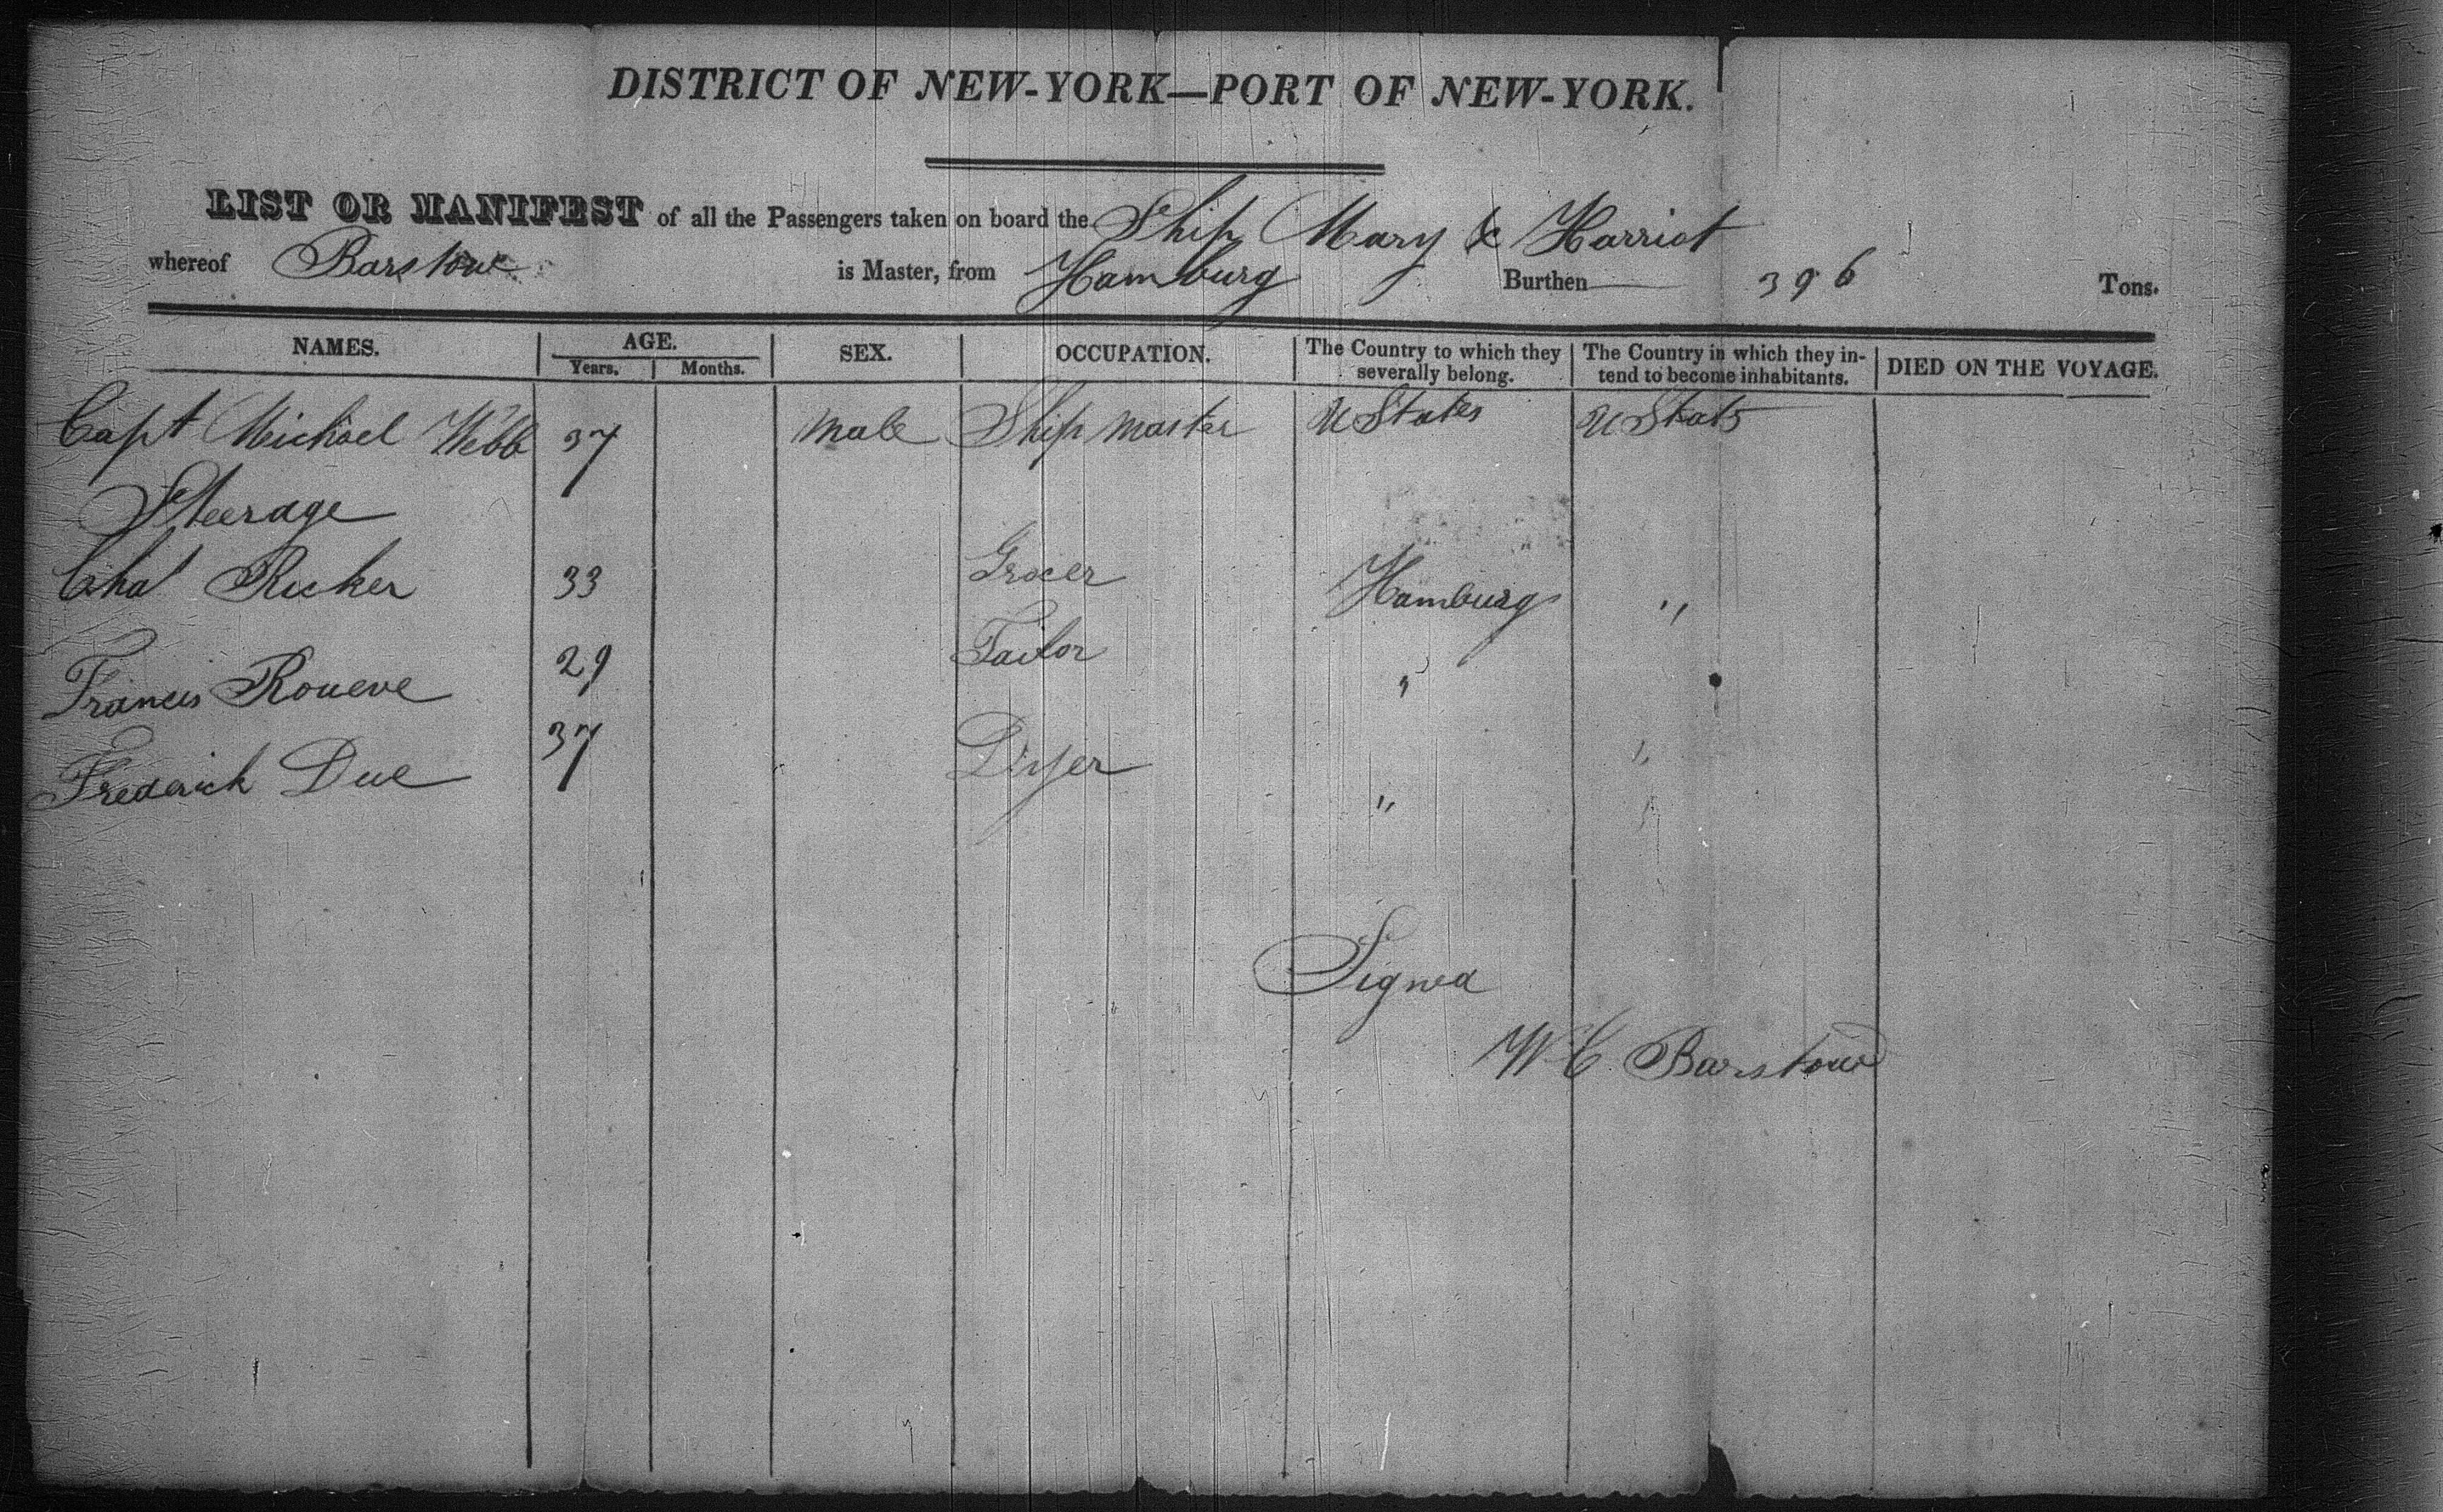 DISTRICT OF NEW-YORK—PORT OF NEW-YORK.
LIST OR MANIFEST of all the Passengers taken on board the Ship Mary & Harriot
whereof Barstow is Master, from Hamburg Burthen 396 Tons.
NAMES. AGE. SEX. OCCUPATION. The Country to which they severally belong. The Country in which they in-tend to become inhabitants. DIED ON THE VOYAGE.
Years. Months.
Capt Michael Webb 37 male Ship master U States U Stats
Steerage
Chas Rucker 33 Grocer Hamburg "
Francis Roueve 29 Tailor " "
Frederick Due 37 Diyer " "
Signed
W C Barstow